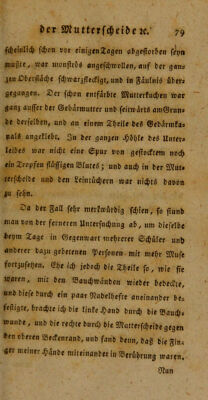 der Mutterscheide ꝛc. 79
scheinlich schon vor einigen Tagen abgestorben seyn
mußte, war monströs angeschwollen, auf der gan-
zen Oberfläche schwarzfleckigt, und in Fäulnis über-
gegangen. Der schon entfärbte Mutterkuchen war
ganz ausser der Gebärmutter und seitwärts am Grun-
de derselben, und an einem Theile des Gedärmka-
nals angeklebt. In der ganzen Höhle des Unter-
leibes war nicht eine Spur von gestocktem noch
ein Tropfen flüssigen Blutes; und auch in der Mut-
terscheide und den Leintüchern war nichts davon
zu sehn.
Da der Fall sehr merkwürdig schien, so stund
man von der ferneren Untersuchung ab, um dieselbe
beym Tage in Gegenwart mehrerer Schüler und
anderer dazu gebetenen Personen mit mehr Muse
fortzusehen. Ehe ich jedoch die Theile so, wie sie
waren, mit den Bauchwänden wieder bedeckte,
und diese durch ein paar Nadelhefte aneinander be-
festigte, brachte ich die linke Hand durch die Bauch-
wunde, und die rechte durch die Mutterscheide gegen
den oberen Beckenrand, und fand denn, daß die Fin-
ger meiner Hände miteinander in Berührung waren.
Nun